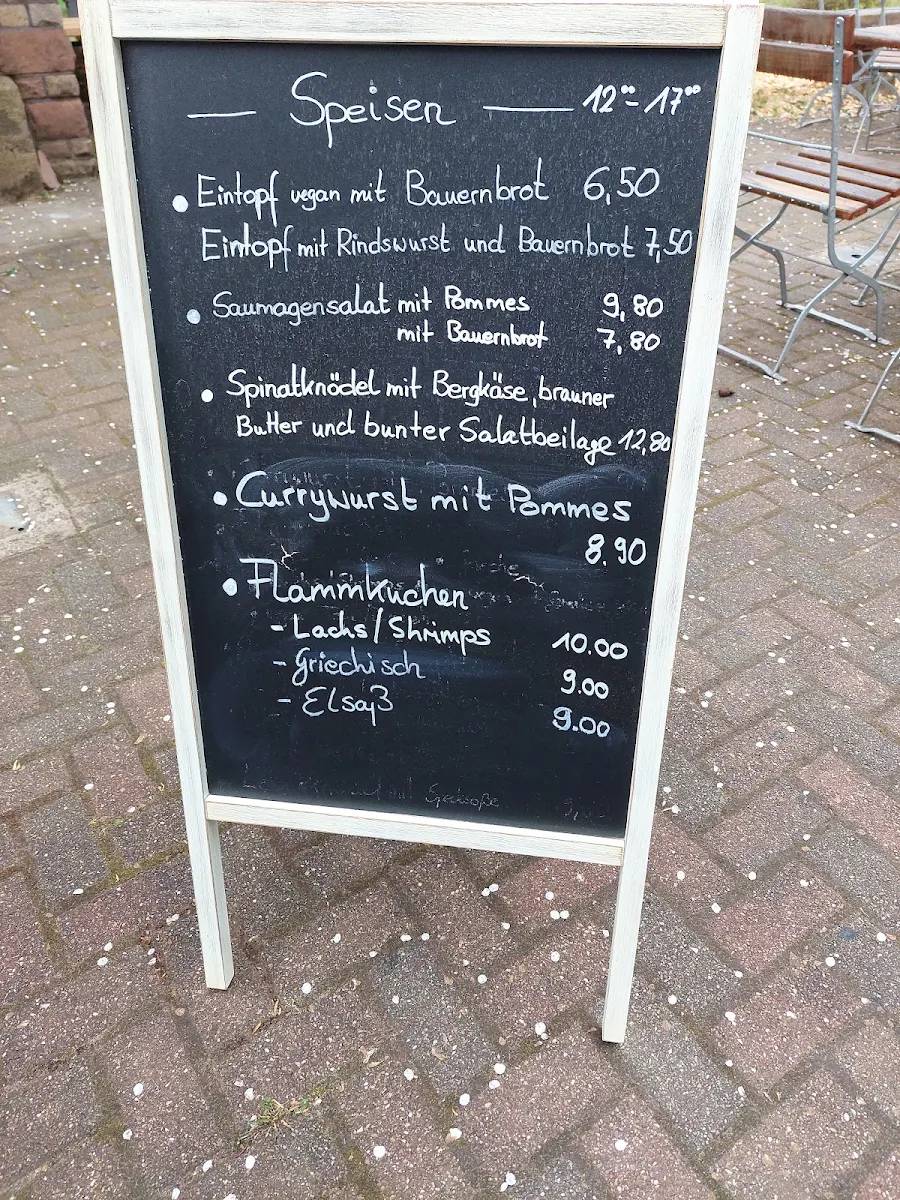 Speisen 12⁰⁰ - 17⁰⁰
• Eintopf vegan mit Bauernbrot 6,50
Eintopf mit Rindswurst und Bauernbrot 7,50
• Saumagensalat mit Pommes 9,80
mit Bauernbrot 7,80
• Spinatknödel mit Bergkäse, brauner
Butter und bunter Salatbeilage 12,80
• Currywurst mit Pommes
8.90
• Flammkuchen
- Lachs/Shrimps 10.00
- Griechisch 9.00
- Elsaß 9.00